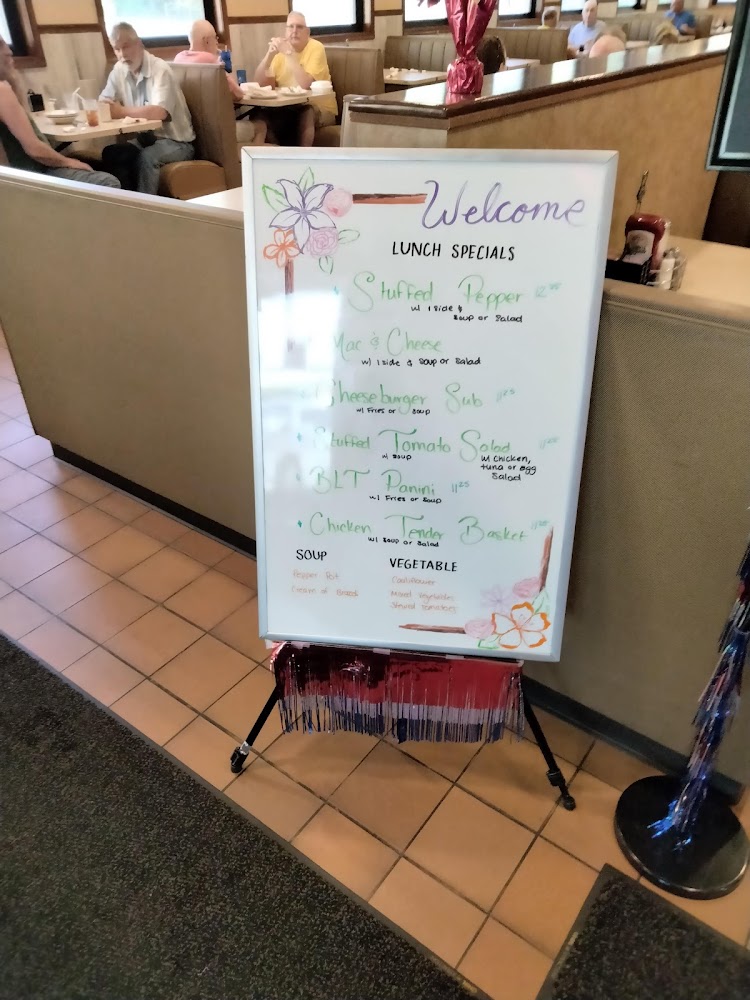 Welcome
LUNCH SPECIALS
Stuffed Pepper
w/ 1 side &
soup or salad
Mac & Cheese
w/ 1 side & soup or salad
Cheeseburger Sub
w/ Fries or soup
Stuffed Tomato Salad
w/ soup
w/ chicken,
tuna or egg
salad
BLT Panini
w/ Fries or soup
Chicken Tender Basket
w/ soup or salad
SOUP
Pepper Pot
Cream of
VEGETABLE
Cauliflower
Mixed vegetables
Stewed tomatoes